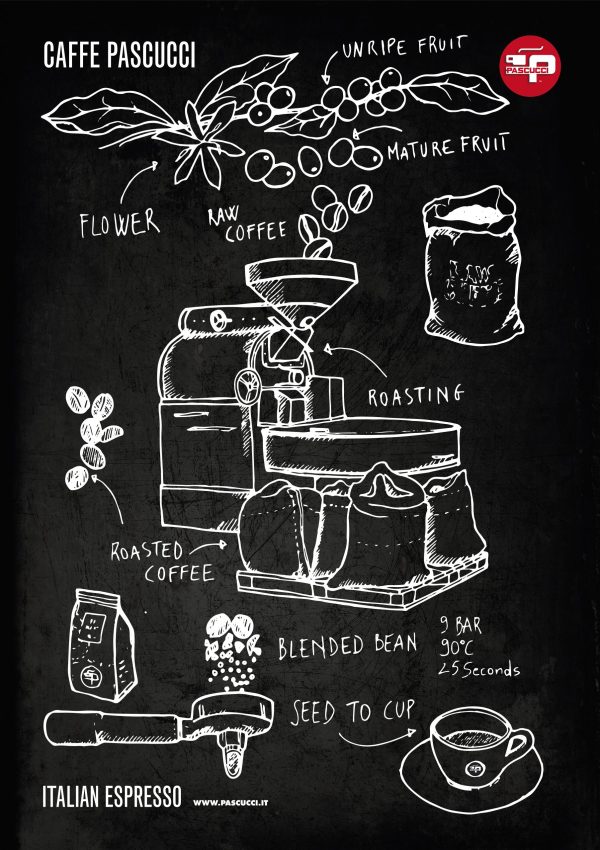 CAFFE PASCUCCI
UNRIPE FRUIT
PASCUCCI
MATURE FRUIT
FLOWER
RAW
COFFEE
ROASTING
ROASTED
COFFEE
BLENDED BEAN
9 BAR
90°C
25 Seconds
SEED TO CUP
ITALIAN ESPRESSO
WWW.PASCUCCI.IT